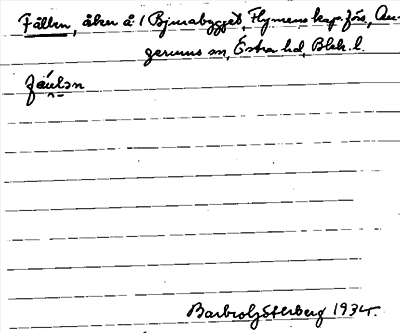 Fällen, åker å 1 Björsabygget, Flymens kap.förs., Au-
gerums sn, Östra hd, Blek. l.
fä́ułən
Barbro Götterberg 1934.